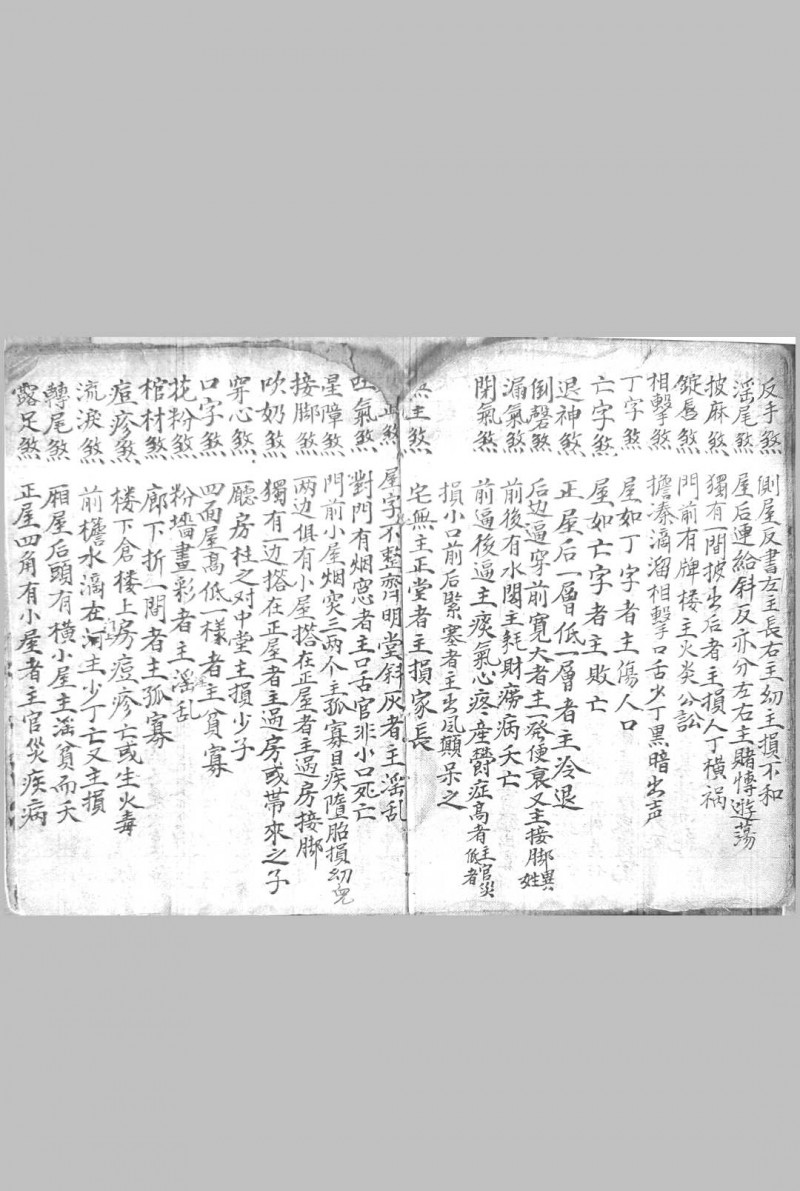 反手煞 側屋反書左主長右主幼主損不和
滛尾煞 屋后連給斜反亦分左右主賭愽遊蕩
披麻煞 獨有一間披出后者主損人丁橫祸
錠唇煞 門前有牌楼主火炎公訟
相擊煞 擔溱滴溜相擊口舌少丁黑暗出声
丁字煞 屋如丁字者主傷人口
亡字煞 屋如亡字者主敗亡
退神煞 正屋后一層低一層者主冷退
倒罄煞 后边逼窄前寬大者主一發便衰又主接脚異姓
漏氣煞 前後有水閣主耗財癆病夭亡
閉氣煞 前逼後逼主痰氣心疼産欝症高者主官災低者
損小口前后緊塞者主出风顛呆之
無主煞 宅無主正堂者主損家長
煞 屋字不整齊明堂斜灰者主滛乱
氣煞 對門有烟窓者主口舌官非小口死亡
星障煞 門前小屋烟突三两个主孤寡目疾墮胎損幼兒
接脚煞 两边俱有小屋搭在正屋者主過房接脚
吹奶煞 獨有一边搭在正屋者主過房或帶來之子
穿心煞 廳房柱之对中堂主損少子
口字煞 四面屋高低一樣者主貧寡
花粉煞 粉墻畫彩者主滛乱
棺材煞 廊下折一間者主孤寡
痘疹煞 楼下倉楼上房痘疹亡或生火毒
流淚煞 前檐水滴在河主少丁亡又主損
轉尾煞 厢屋后頭有橫小屋主滛貧而夭
露足煞 正屋四角有小屋者主官災疾病